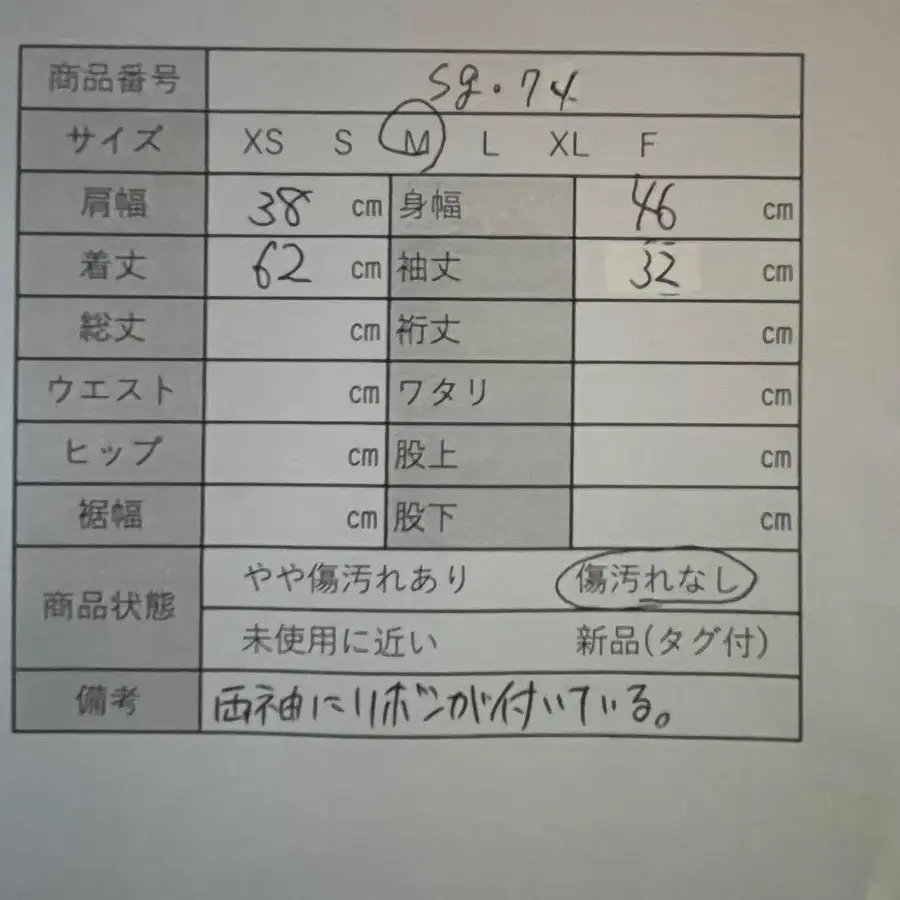 商品番号 sg.74
サイズ XS S M L XL F
肩幅 38 cm 身幅 46 cm
着丈 62 cm 袖丈 32 cm
総丈 cm 裄丈 cm
ウエスト cm ワタリ cm
ヒップ cm 股上 cm
裾幅 cm 股下 cm
商品状態 やや傷汚れあり 傷汚れなし
未使用に近い 新品(タグ付)
備考 両袖にリボンが付いている。